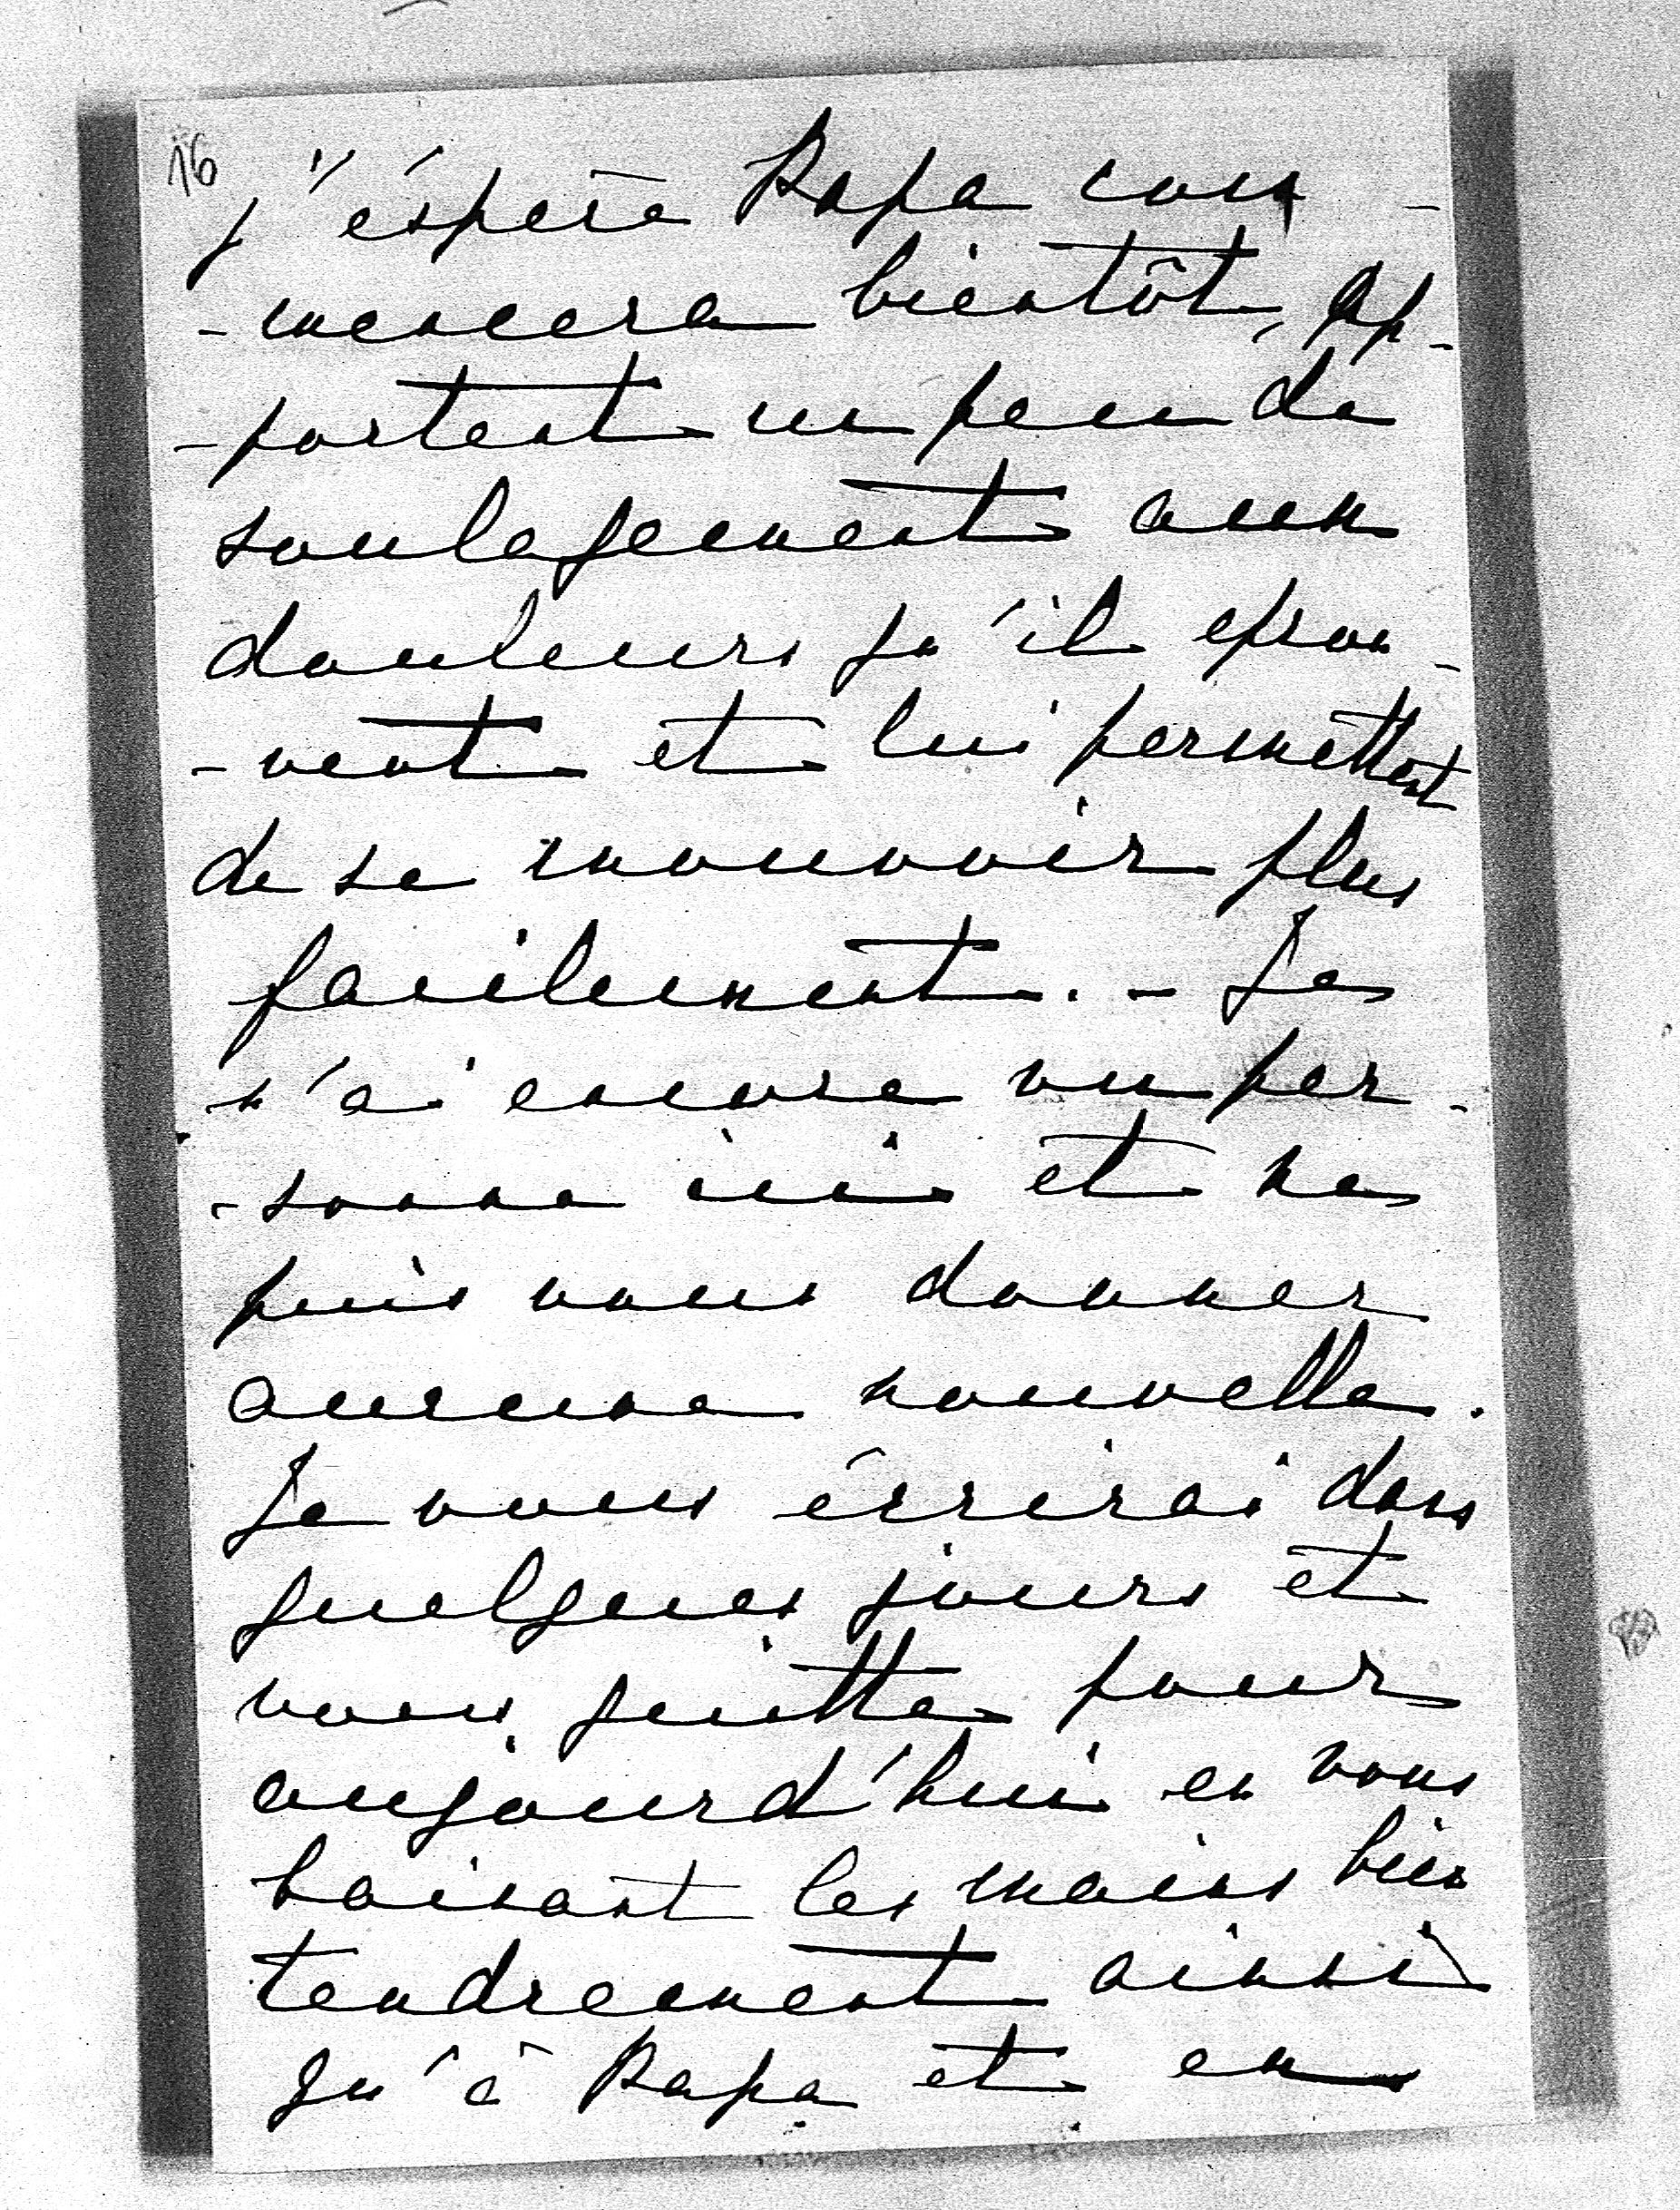 16
j'éspère Papa com-
-mencera bientôt, ap-
-portent un peu de
soulagement aux
douleurs qu'il eprou-
-vent et lui permettent
de se mouvoir plus
facilement. - Je
n'ai encore vu per-
-sonne ici et ne
puis vous donner
aucune nouvelle.
Je vous écrirai dans
quelques jours et
vous quitte pour
aujourd'hui en vous
baisant les mains bien
tendrement ainsi
qu'à Papa et en